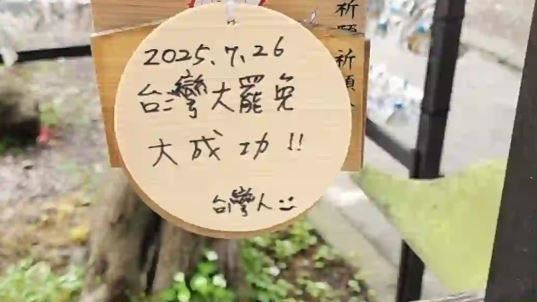 2025.7.26
台灣大罷免
大成功!!
台灣人
祈願
祈願人